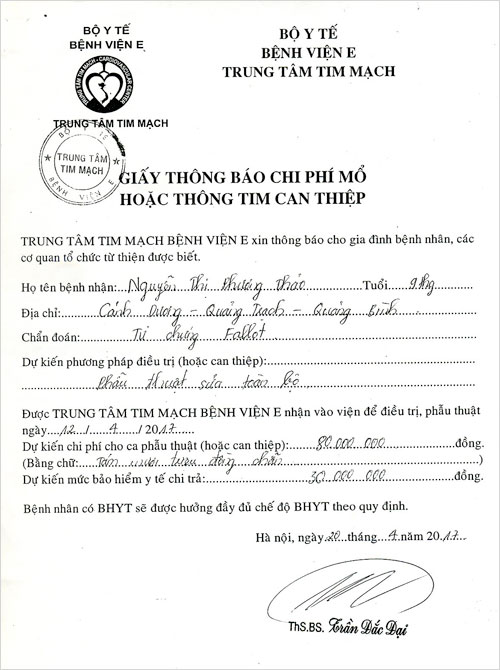 BỘ Y TẾ
BỆNH VIỆN E
TRUNG TÂM TIM MẠCH - CARDIOVASCULAR CENTER
TRUNG TÂM TIM MẠCH
BỘ Y TẾ
BỆNH VIỆN E
TRUNG TÂM TIM MẠCH
BỘ Y TẾ
TRUNG TÂM
TIM MẠCH
BỆNH VIỆN E
GIẤY THÔNG BÁO CHI PHÍ MỔ
HOẶC THÔNG TIM CAN THIỆP
TRUNG TÂM TIM MẠCH BỆNH VIỆN E xin thông báo cho gia đình bệnh nhân, các
cơ quan tổ chức từ thiện được biết.
Họ tên bệnh nhân: Nguyễn Thị Phương Thảo Tuổi 9 thg
Địa chỉ: Cảnh Dương - Quảng Trạch - Quảng Bình
Chẩn đoán: Tứ chứng Fallot
Dự kiến phương pháp điều trị (hoặc can thiệp):
Phẫu thuật sửa toàn bộ
Được TRUNG TÂM TIM MẠCH BỆNH VIỆN E nhận vào viện để điều trị, phẫu thuật
ngày 12 / 4 / 2017
Dự kiến chi phí cho ca phẫu thuật (hoặc can thiệp): 80.000.000 đồng.
(Bằng chữ: Tám mươi triệu đồng chẵn)
Dự kiến mức bảo hiểm y tế chi trả: 30.000.000 đồng.
Bệnh nhân có BHYT sẽ được hưởng đầy đủ chế độ BHYT theo quy định.
Hà nội, ngày 20 tháng 4 năm 2017
ThS.BS. Trần Đắc Đại